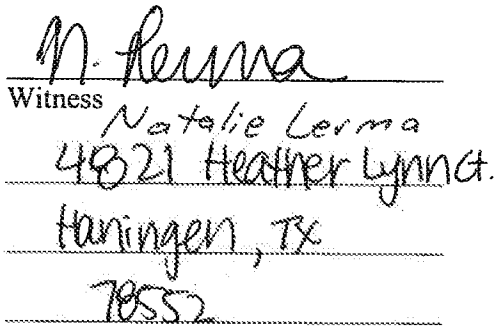 N. Lerma
Witness
Natalie Lerma
4821 Heather Lynn Ct.
Harlingen, TX
78552